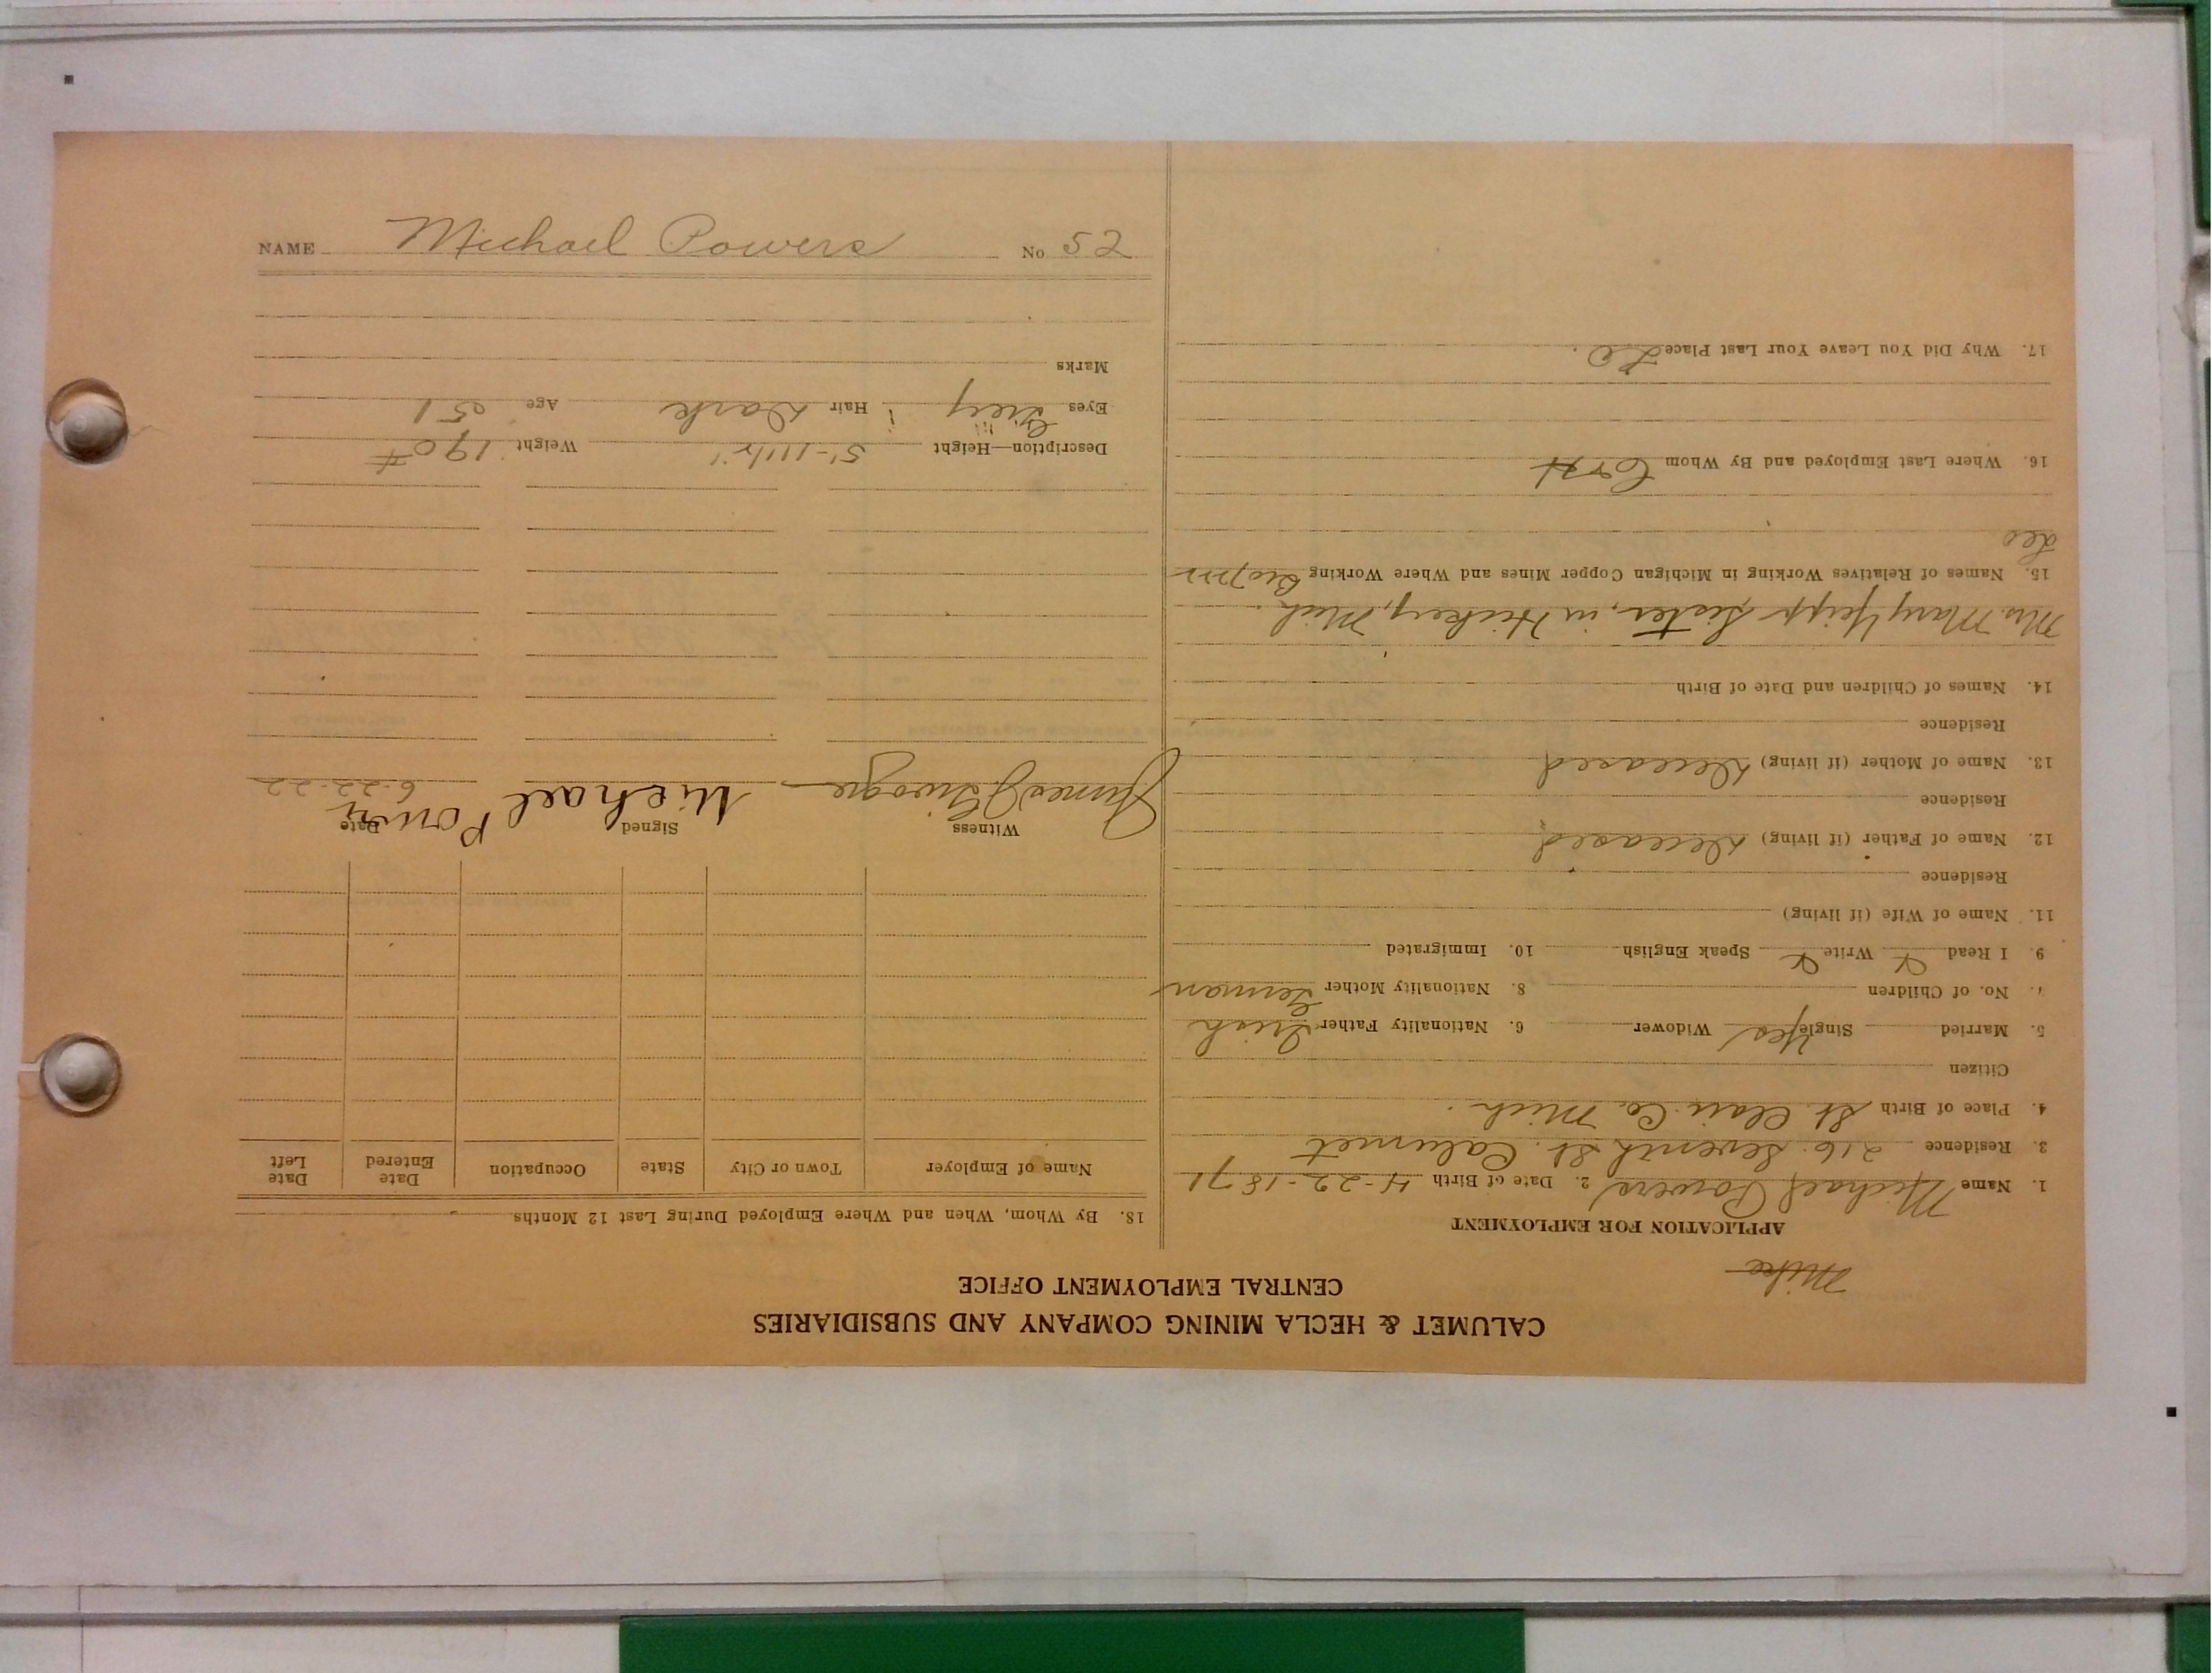 NAME Michael Powers No 52
CALUMET & HECLA MINING COMPANY AND SUBSIDIARIES
CENTRAL EMPLOYMENT OFFICE
Mike
APPLICATION FOR EMPLOYMENT
1. Name Michael Powers 2. Date of Birth 4-22-1871
3. Residence 216 Seventh St. Calumet
4. Place of Birth St. Clair Co. Mich.
Citizen
5. Married Single Yes Widower 6. Nationality Father Irish
7. No. of Children 8. Nationality Mother German
9. I Read Write Speak English 10. Immigrated
11. Name of Wife (if living)
Residence
12. Name of Father (if living) Deceased
Residence
13. Name of Mother (if living) Deceased
Residence
14. Names of Children and Date of Birth
Mrs. Mary Sister, in Mich.
15. Names of Relatives Working in Michigan Copper Mines and Where Working
16. Where Last Employed and By Whom C & H
17. Why Did You Leave Your Last Place
18. By Whom, When and Where Employed During Last 12 Months
Name of Employer Town or City State Occupation Date Entered Date Left
Witness Signed Date
James Michael Powers 6-22-22
Description—Height 5'-11½" Weight 190#
Eyes Grey Hair Dark Age 51
Marks